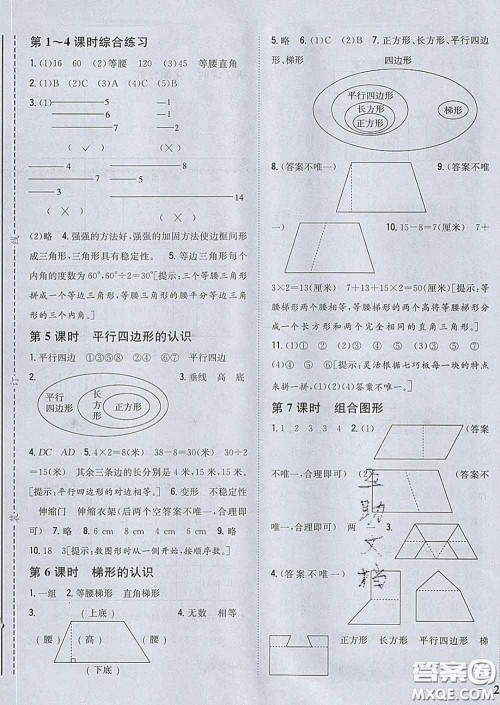 第1～4课时综合练习
1.(1)16 (2)等腰 (3)120 60 45 等腰直角
2.(1)B (2)C (3)A
3.(1) 5 1
4 5
7 6
( ✓ ) ( × )
7 4
4 6
11 14
(2)略 4.强强的方法好,强强的加固方法使边框间形
成三角形,三角形具有稳定性。 5.等边三角形每个
内角的度数为60°,60°÷2=30°[提示:三个等腰三角形
拼成一个等边三角形,等腰三角形的腰平分等边三角
形的三个内角。]
第5课时 平行四边形的认识
1.平行四边 ①③⑤⑧ ②④ ⑥⑦
2.
平行
四边形
长
方
形
正方形
3.垂线 高 底
4.DC AD 5.4×2=8(米) 38-8=30(米) 30÷2
=15(米) 其余三条边的长分别是4米,15米,15米。
[提示:平行四边形的对边相等。] 6.变形 不稳定性
伸缩门 伸缩衣架(后两个空答案不唯一) 7.略 8.略
9.略
10.18 3[提示:数图形时从一侧开始,按顺序数。]
第6课时 梯形的认识
1.一组 2.等腰梯形 直角梯形
3. (上底) 4.无数 相等
(腰) (高) (腰)
(下底)
5.略 6.(1)× (2)✓ 7.正方形、长方形、平行四边
形、梯形 四边形
平行四边形
长方形
正方形
梯形
8.(答案不唯一) 9.(答案不唯
一) 10.15-8=7(厘米) 7-4=
3 3×2=13(厘米) 7+13+15×2=50(厘米)[提示:
等腰梯形两个腰相等。等腰梯形的两个高将等腰梯形
分成一个长方形和两个完全相同的直角三角形。]
11.(1)① ② ④ ⑥ (2)① ② ③ ④ ⑤[提
示:灵活根据七巧板每一块的特点
来拼一拼,(1)(2)答案不唯一。]
第7课时 组合图形
1.1 2 3 3 4 2.(1) (答案
不唯一,合理即可) (2) (答案不
唯一,合理即可) 两 一 3.
4.(答案不唯一)
正方形 长方形 平行四边形
三角形 梯形
2
答案圈
MXQE.COM